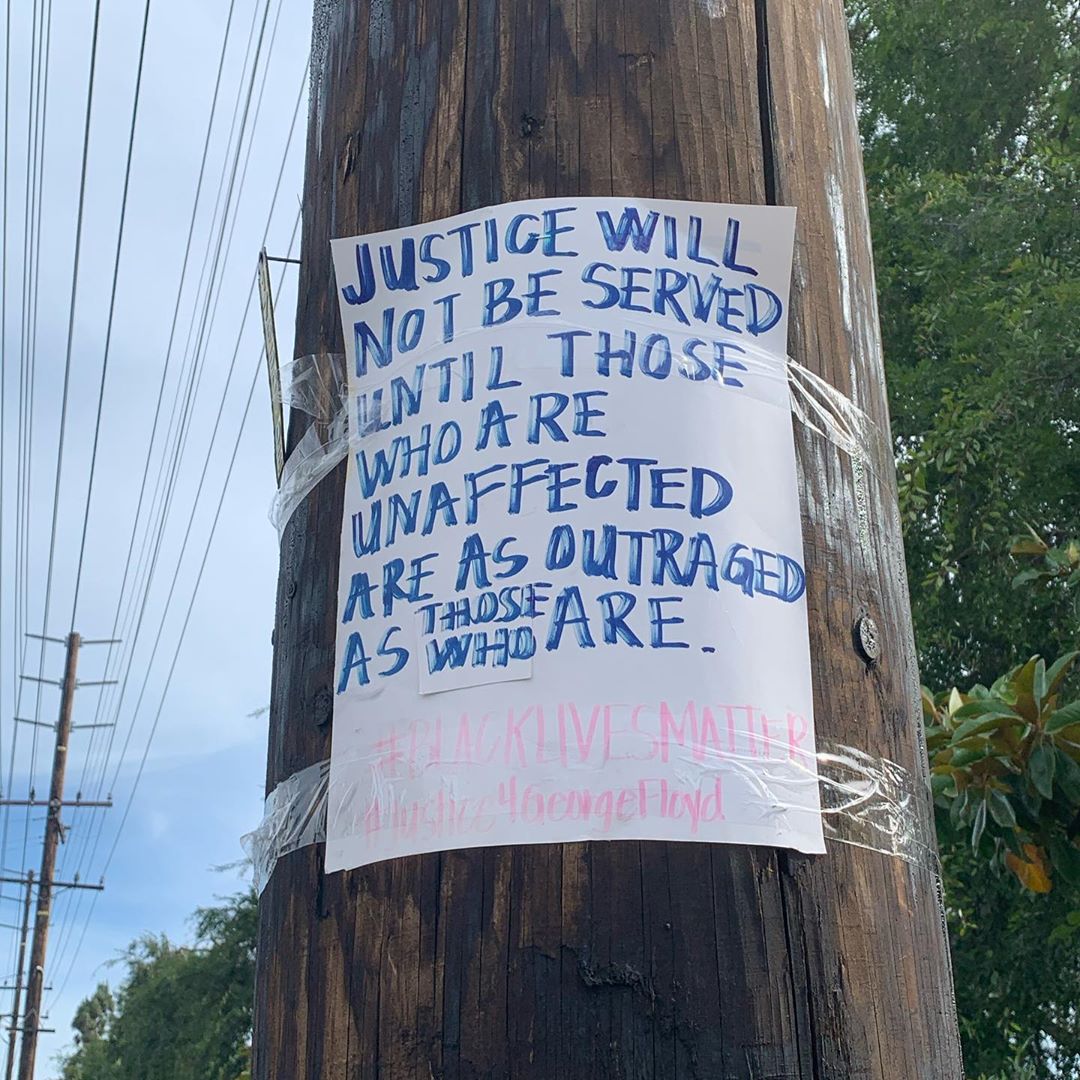 JUSTICE WILL
NOT BE SERVED
UNTIL THOSE
WHO ARE
UNAFFECTED
ARE AS OUTRAGED
AS THOSE WHO ARE.
#BLACKLIVESMATTER
#Justice4GeorgeFloyd